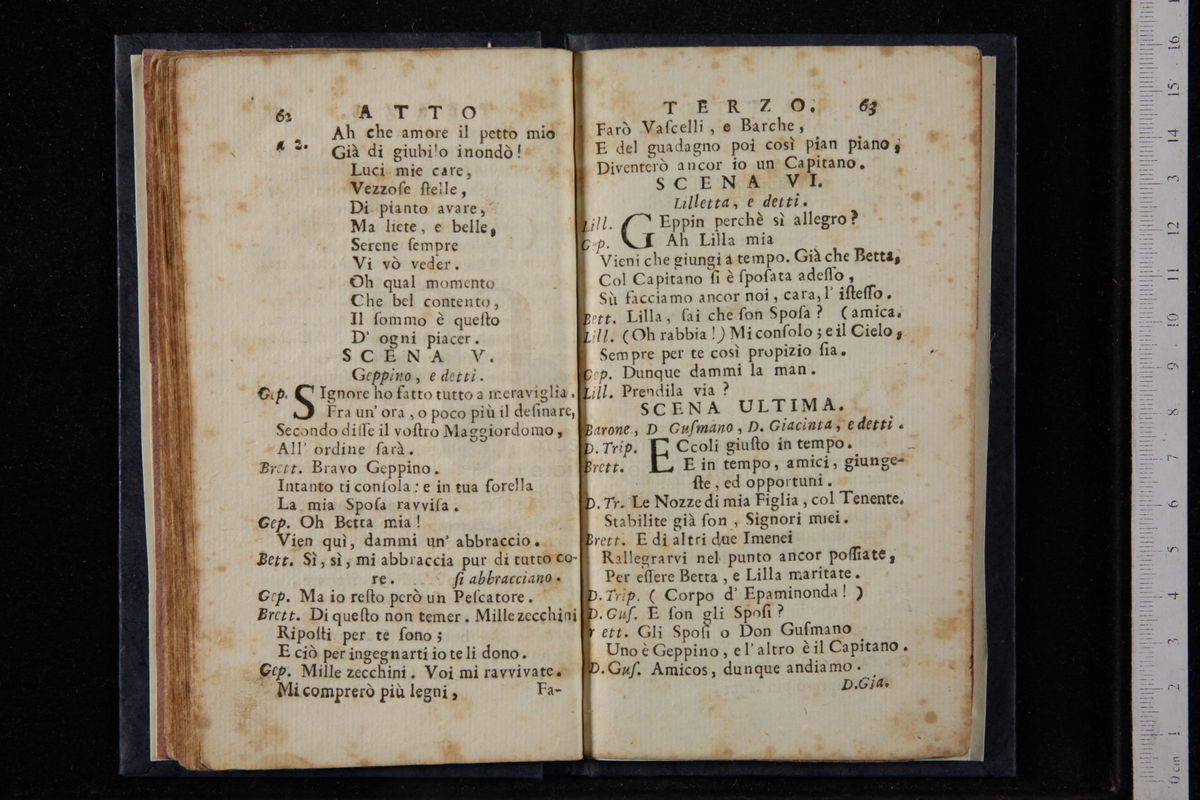 62 ATTO
Ah che amore il petto mio
a 2. Già di giubilo inondò!
Luci mie care,
Vezzoſe ſtelle,
Di pianto avare,
Ma liete, e belle,
Serene ſempre
Vi vò veder.
Oh qual momento
Che bel contento,
Il ſommo è queſto
D' ogni piacer.
SCENA V.
Geppino, e detti.
Gep. SIgnore ho fatto tutto a meraviglia.
Fra un' ora, o poco più il deſinare,
Secondo diſſe il voſtro Maggiordomo,
All' ordine ſarà.
Brett. Bravo Geppino.
Intanto ti conſola: e in tua ſorella
La mia Spoſa ravviſa.
Gep. Oh Betta mia!
Vien quì, dammi un' abbraccio.
Bett. Sì, sì, mi abbraccia pur di tutto co-
re. ſi abbracciano.
Gep. Ma io reſto però un Peſcatore.
Brett. Di queſto non temer. Mille zecchini
Ripoſti per te ſono;
E ciò per ingegnarti io te li dono.
Gep. Mille zecchini. Voi mi ravvivate.
Mi comprerò più legni, Fa-
TERZO. 63
Farò Vaſcelli, e Barche,
E del guadagno poi così pian piano,
Diventerò ancor io un Capitano.
SCENA VI.
Lilletta, e detti.
Lill. GEppin perchè sì allegro?
Gep. Ah Lilla mia
Vieni che giungi a tempo. Già che Betta,
Col Capitano ſi è ſpoſata adeſſo,
Sù facciamo ancor noi, cara, l' iſteſſo.
Bett. Lilla, ſai che ſon Spoſa? (amica.
Lill. (Oh rabbia!) Mi conſolo; e il Cielo,
Sempre per te così propizio ſia.
Gep. Dunque dammi la man.
Lill. Prendila via?
SCENA ULTIMA.
Barone, D Guſmano, D. Giacinta, e detti.
D. Trip. ECcoli giuſto in tempo.
Brett. E in tempo, amici, giunge-
ſte, ed opportuni.
D. Tr. Le Nozze di mia Figlia, col Tenente.
Stabilite già ſon, Signori miei.
Brett. E di altri due Imenei
Rallegrarvi nel punto ancor poſſiate,
Per eſſere Betta, e Lilla maritate.
D. Trip. (Corpo d' Epaminonda!)
D. Guſ. E ſon gli Spoſi?
r ett. Gli Spoſi o Don Guſmano
Uno è Geppino, e l' altro è il Capitano.
D. Guſ. Amicos, dunque andiamo.
D.Gia.
0 cm 1 2 3 4 5 6 7 8 9 10 11 12 13 14 15 16